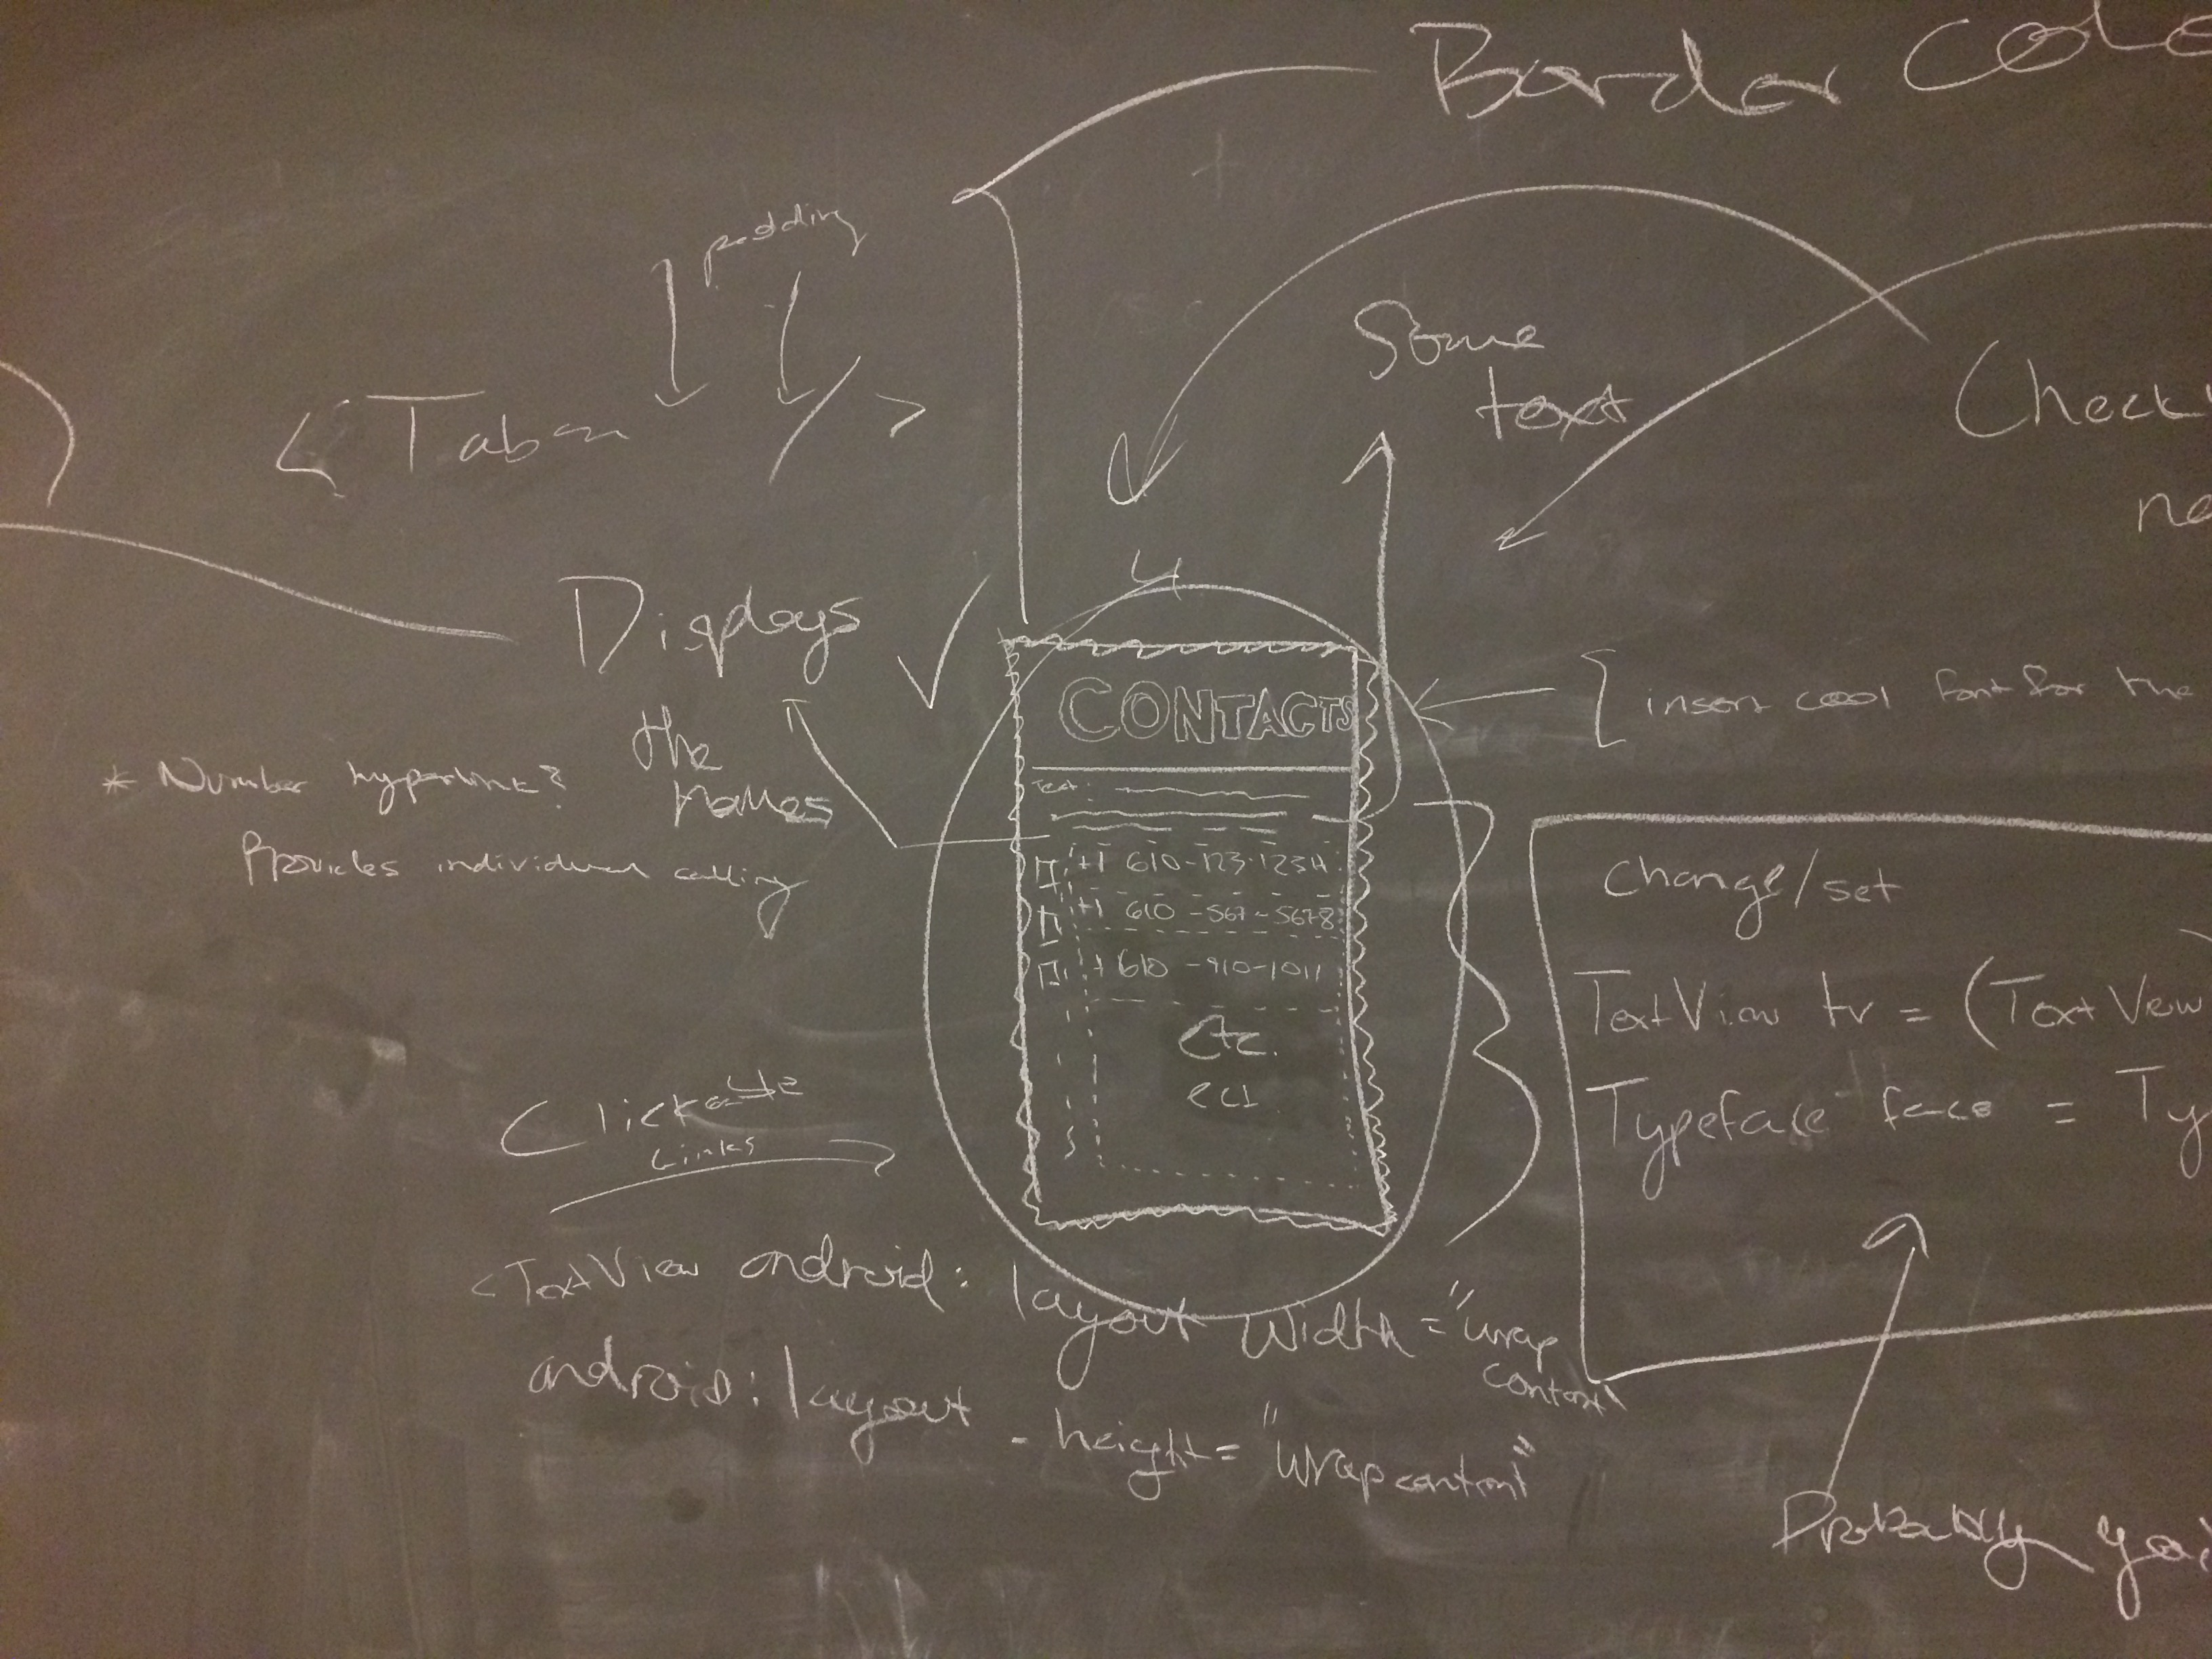 Border Colo
padding
Some
text
Check
ne
< Tab />
Displays
the
names
CONTACTS
[ insert cool font for the
* Number hyperlink?
Provides individual calling
Text:
+1 610-123-1234
+1 610-567-5678
+ 610-910-1011
Etc.
ect.
Change/set
TextView tv = (TextView
Typeface face = Ty
Clickable
Links
<TextView android: layout Width = "wrap
content
android: layout - height = "wrap content"
Probably